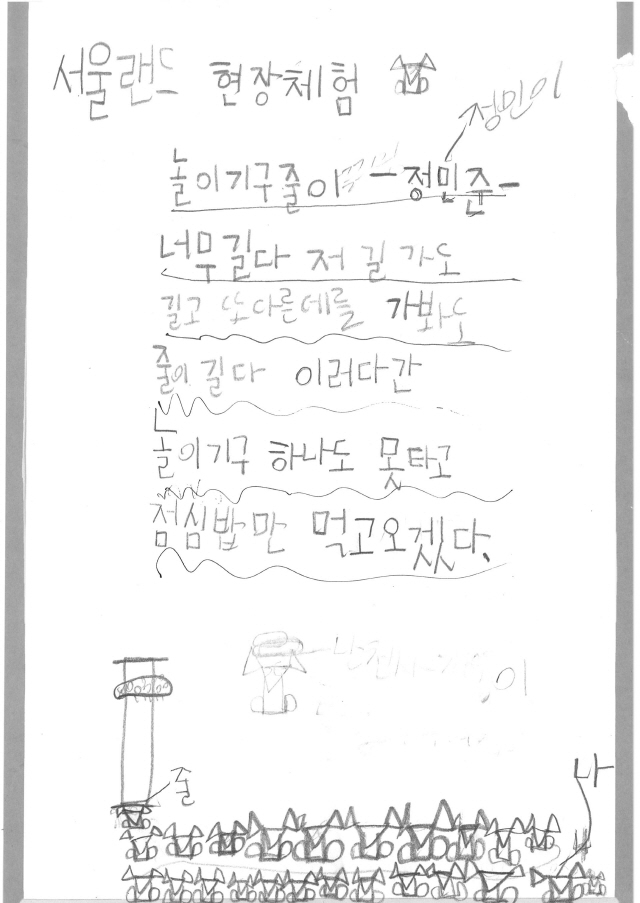 서울랜드 현장체험
정민이
놀이기구줄이 -정민준-
너무길다 저 길 가도
길고 또다른데를 가봐도
줄이 길다 이러다간
놀이기구 하나도 못타고
점심밥만 먹고오겠다.
줄
나